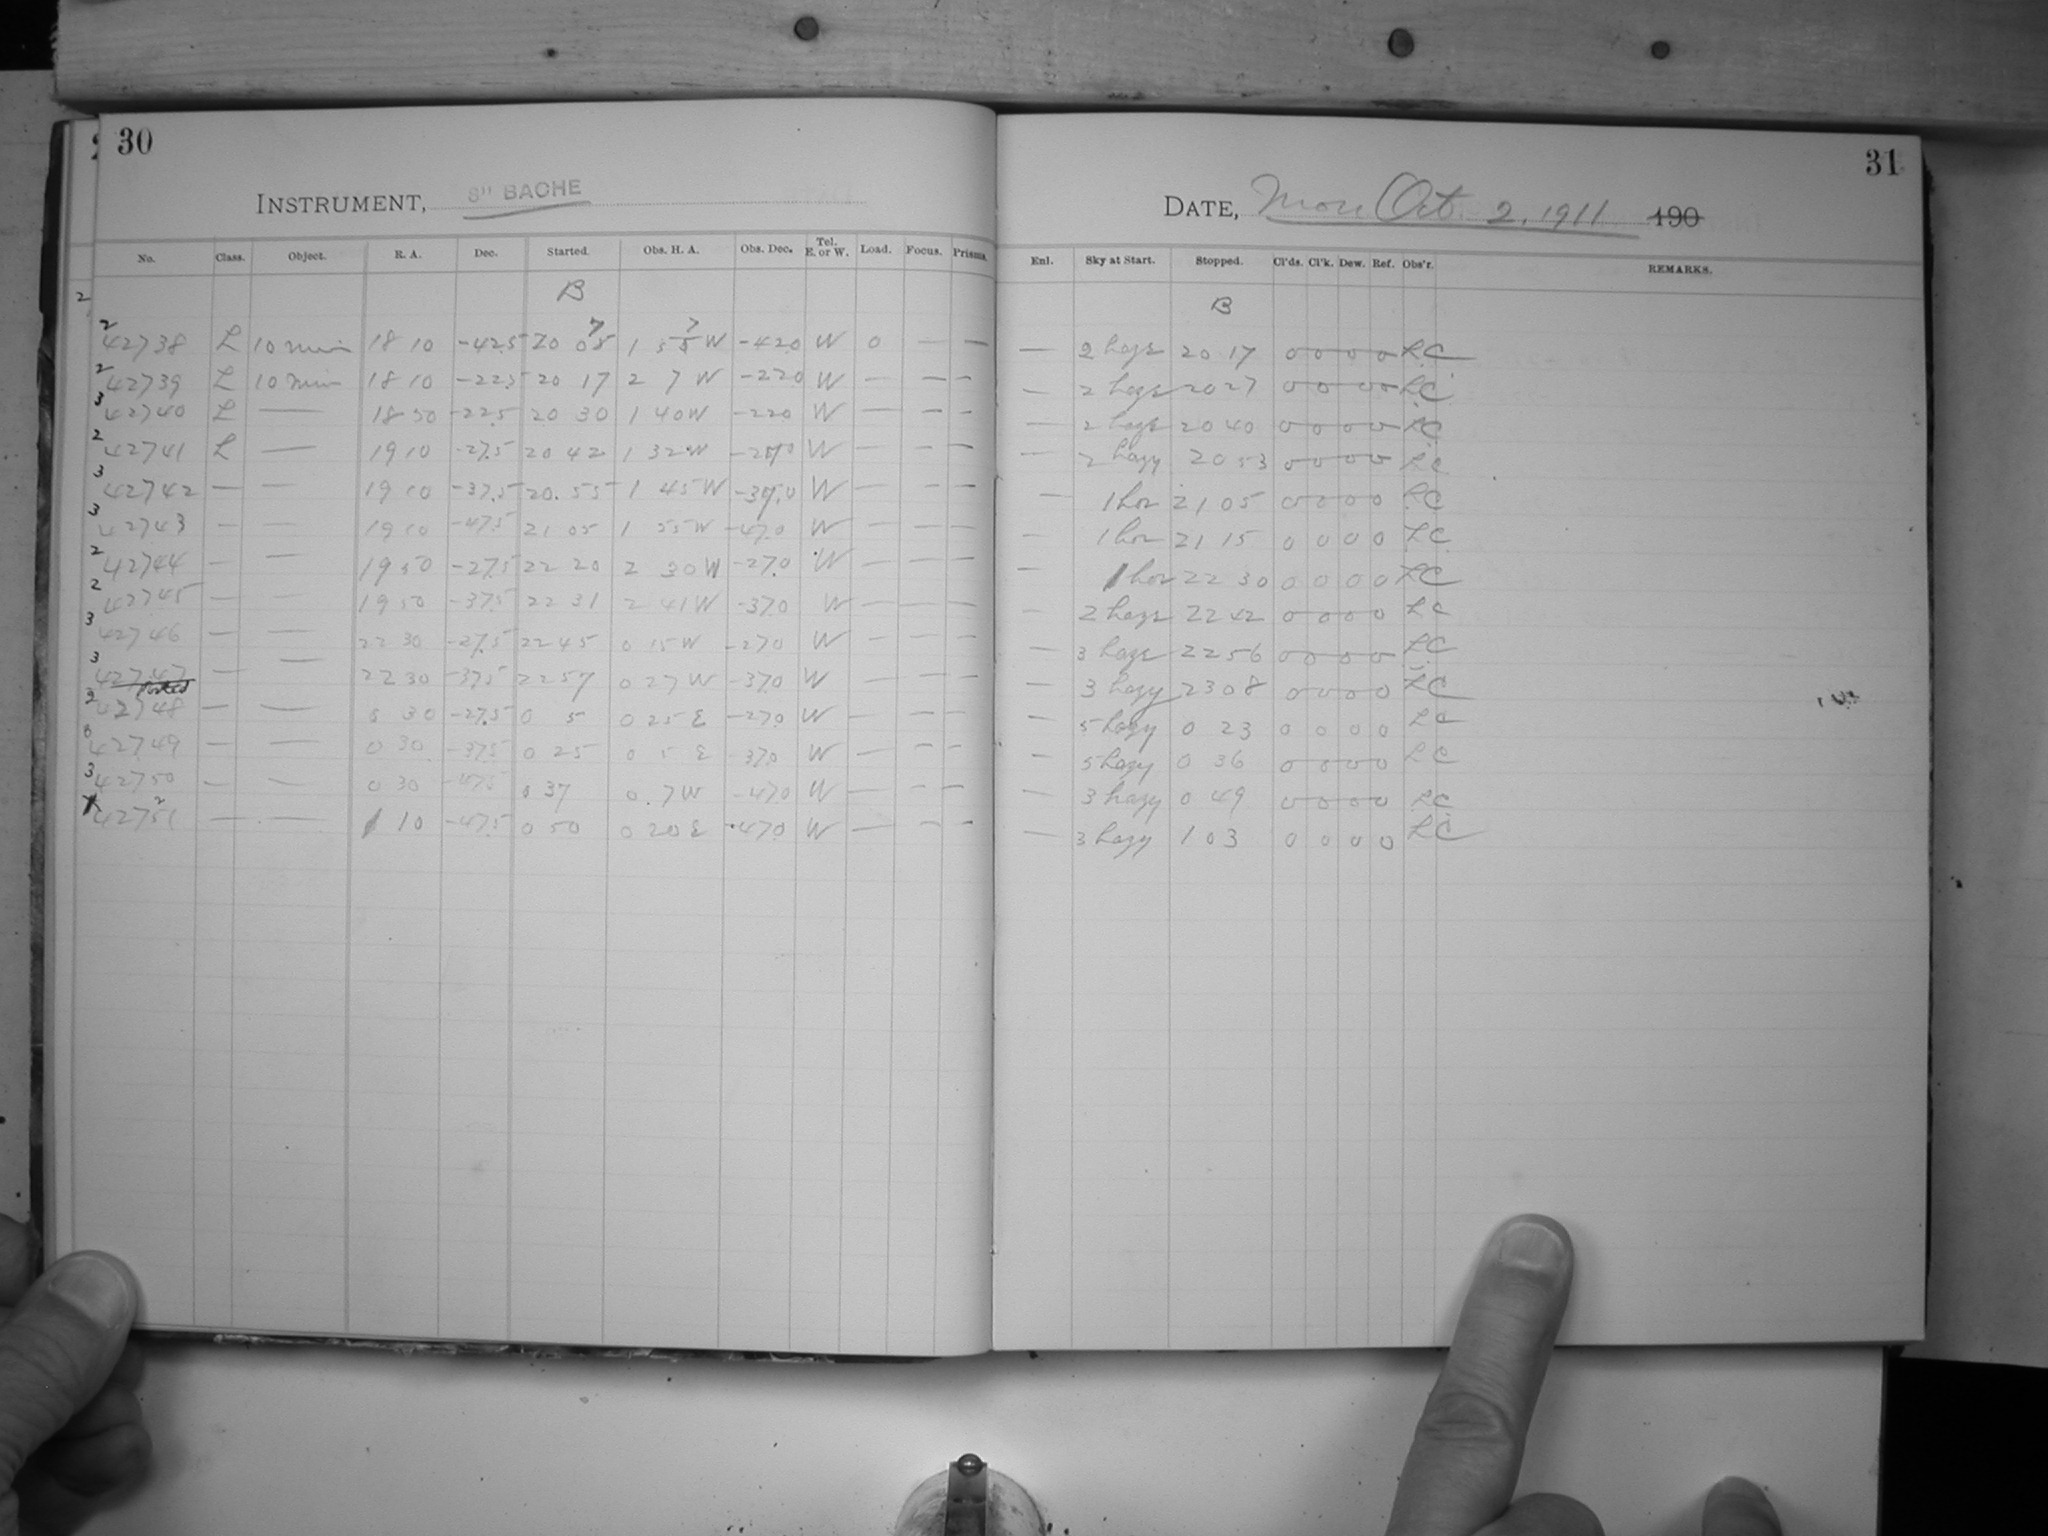 30
INSTRUMENT, 8" BACHE
No. Class. Object. R. A. Dec. Started. Obs. H. A. Obs. Dec. Tel. E. or W. Load. Focus. Prisms.
2 B
2 42738 L 10 min 18 10 -42.5 20 05 7 1 55 7 W -42.0 W 0 — —
2 42739 L 10 min 18 10 -22.5 20 17 2 7 W -22.0 W — — —
3 42740 L — 18 50 -22.5 20 30 1 40 W -22.0 W — — —
2 42741 L — 19 10 -27.5 20 42 1 32 W -27.0 W — — —
3 42742 — — 19 10 -37.5 20.55 1 45 W -37.0 W — — —
3 42743 — — 19 10 -47.5 21 05 1 55 W -47.0 W — — —
2 42744 — — 19 50 -27.5 22 20 2 30 W -27.0 W — — —
2 42745 — — 19 50 -37.5 22 31 2 41 W -37.0 W — — —
3 42746 — — 22 30 -27.5 22 45 0 15 W -27.0 W — — —
3 42747 — — 22 30 -37.5 22 57 0 27 W -37.0 W — — —
2 42748 — — 0 30 -27.5 0 5 0 25 E -27.0 W — — —
42749 — — 0 30 -37.5 0 25 0 5 E -37.0 W — — —
3 42750 — — 0 30 -47.5 0 37 0.7 W -47.0 W — — —
42751 2 — — 1 10 -47.5 0 50 0 20 E -47.0 W — — —
31
DATE, Mon Oct. 2, 1911 190
Enl. Sky at Start. Stopped. Cl'ds. Cl'k. Dew. Ref. Obs'r. REMARKS.
B
— 2 haze 20 17 0 0 0 0 LC
— 2 haze 20 27 0 0 0 0 LC
— 2 haze 20 40 0 0 0 0 LC
— 2 hazy 20 53 0 0 0 0 LC
— 1 hor 21 05 0 0 0 0 LC
— 1 hor 21 15 0 0 0 0 LC
— 1 hor 22 30 0 0 0 0 LC
— 2 haze 22 42 0 0 0 0 LC
— 3 haze 22 56 0 0 0 0 LC
— 3 hazy 23 08 0 0 0 0 LC
— 5 hazy 0 23 0 0 0 0 LC
— 5 hazy 0 36 0 0 0 0 LC
— 3 hazy 0 49 0 0 0 0 LC
— 3 hazy 1 03 0 0 0 0 LC